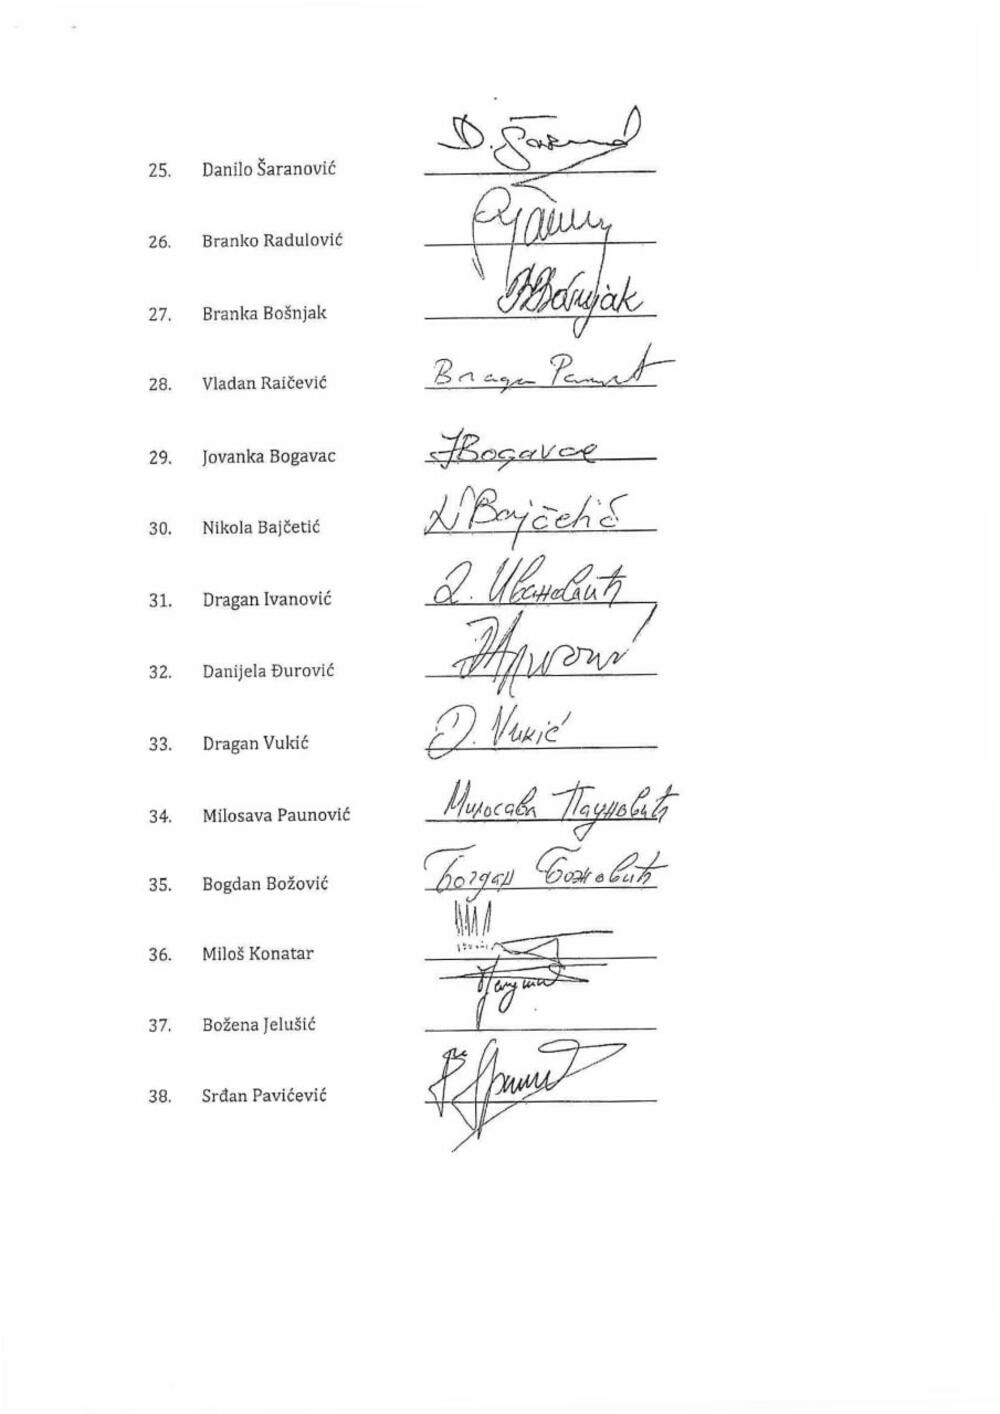 D.
25. Danilo Šaranović
26. Branko Radulović
Bošnjak
27. Branka Bošnjak
28. Vladan Raičević
29. Jovanka Bogavac JBogavac
30. Nikola Bajčetić N Bajčetić
31. Dragan Ivanović D. Ивановић
32. Danijela Đurović
33. Dragan Vukić D. Vukić
34. Milosava Paunović Милосава Пауновић
35. Bogdan Božović Богдан Божовић
36. Miloš Konatar
37. Božena Jelušić
38. Srđan Pavićević